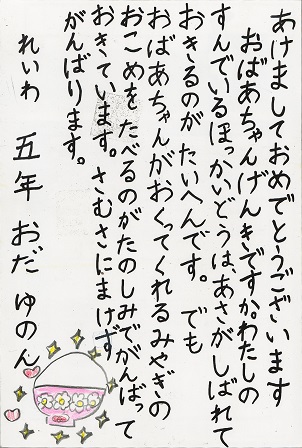 あけましておめでとうございます
おばあちゃんげんきですか。わたしの
すんでいるほっかいどうは、あさがしばれて
おきるのが たいへんです。 でも
おばあちゃんがおくってくれるみやぎの
おこめを たべるのがたのしみでがんばって
おきています。さむさにまけず
がんばります。
れいわ 五年 おだ ゆのん